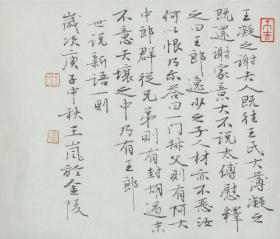 王凝之谢夫人既往王氏大薄凝之
既还谢家意大不说太傅慰释
之曰王郎逸少之子人材亦不恶汝
何以恨乃尔答曰一门叔父则有阿大
中郎群从兄弟则有封胡遏末
不意天壤之中乃有王郎
世说新语一则
岁次庚子中秋王岚於金陵